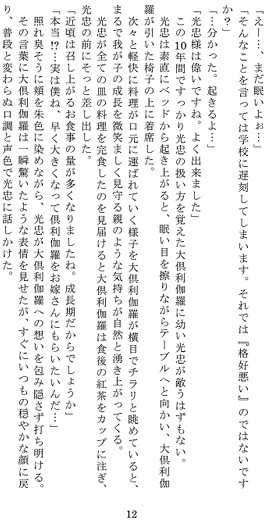 「えー…、まだ眠いよぉ…」
「そんなことを言っては学校に遅刻してしまいます。それでは『格好悪い』のではないです
か？」
「…分かった。起きるよ…」
「光忠様は偉いですね。よく出来ました」
この10年間ですっかり光忠の扱い方を覚えた大倶利伽羅に幼い光忠が敵うはずもない。
光忠は素直にベッドから起き上がると、眠い目を擦りながらテーブルへと向かい、大倶利伽
羅が引いた椅子の上に着席した。
次々と軽快に料理が口元に運ばれていく様子を大倶利伽羅が横目でチラリと眺めていると、
まるで我が子の成長を微笑ましく見守る親のような気持ちが自然と湧き上がってくる。
光忠が全ての皿の料理を完食したのを見届けると大倶利伽羅は食後の紅茶をカップに注ぎ、
光忠の前にそっと差し出した。
「近頃は召し上がるお食事の量が多くなりましたね。成長期だからでしょうか」
「本当!?…実は僕ね、早く大きくなって倶利伽羅をお嫁さんにもらいたいんだ…」
照れ臭そうに頬を朱色に染めながら、光忠が大倶利伽羅への想いを包み隠さず打ち明ける。
その言葉に大倶利伽羅は一瞬驚いたような表情を見せたが、すぐにいつもの穏やかな顔に戻
り、普段と変わらぬ口調と声色で光忠に話しかけた。
12